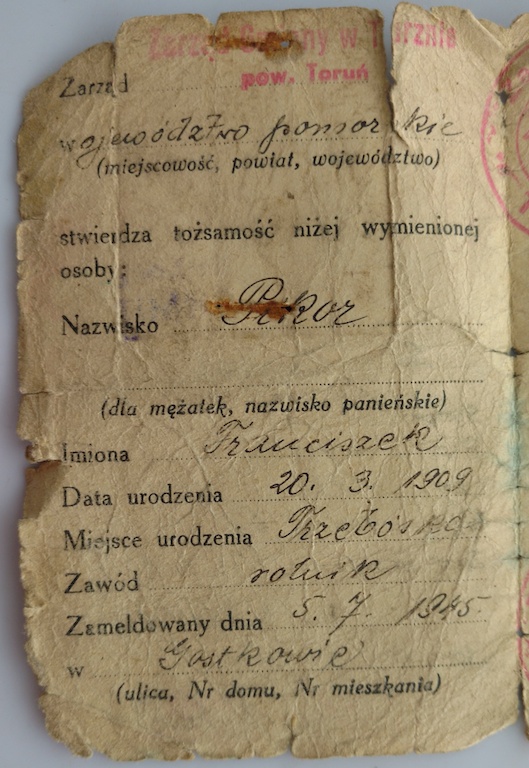 Zarząd Gminy w
pow. Toruń
województwo pomorskie
(miejscowość, powiat, województwo)
stwierdza tożsamość niżej wymienionej
osoby:
Nazwisko
(dla mężatek, nazwisko panieńskie)
Imiona Franciszek
Data urodzenia 20. 3. 1909
Miejsce urodzenia
Zawód rolnik
Zameldowany dnia 5. 7. 1945
w Gostkowie
(ulica, Nr domu, Nr mieszkania)